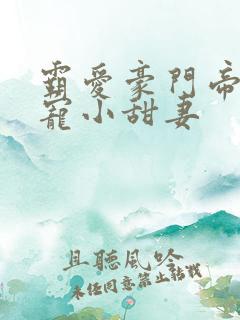 霸愛豪門帝
寵小甜妻
且聽風吟
未經同意禁止轉載